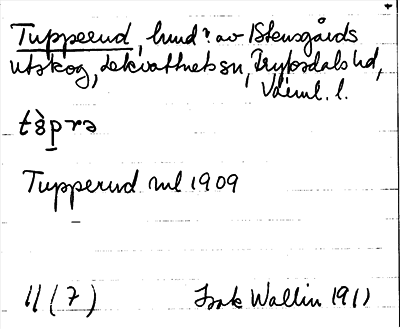 Tupperud, lund? av Stensgårds
utskog, Lekvattnets sn, Fryksdals hd,
Värml. l.
Tupperud ml 1909
11 (7) Isak Wallin 1911